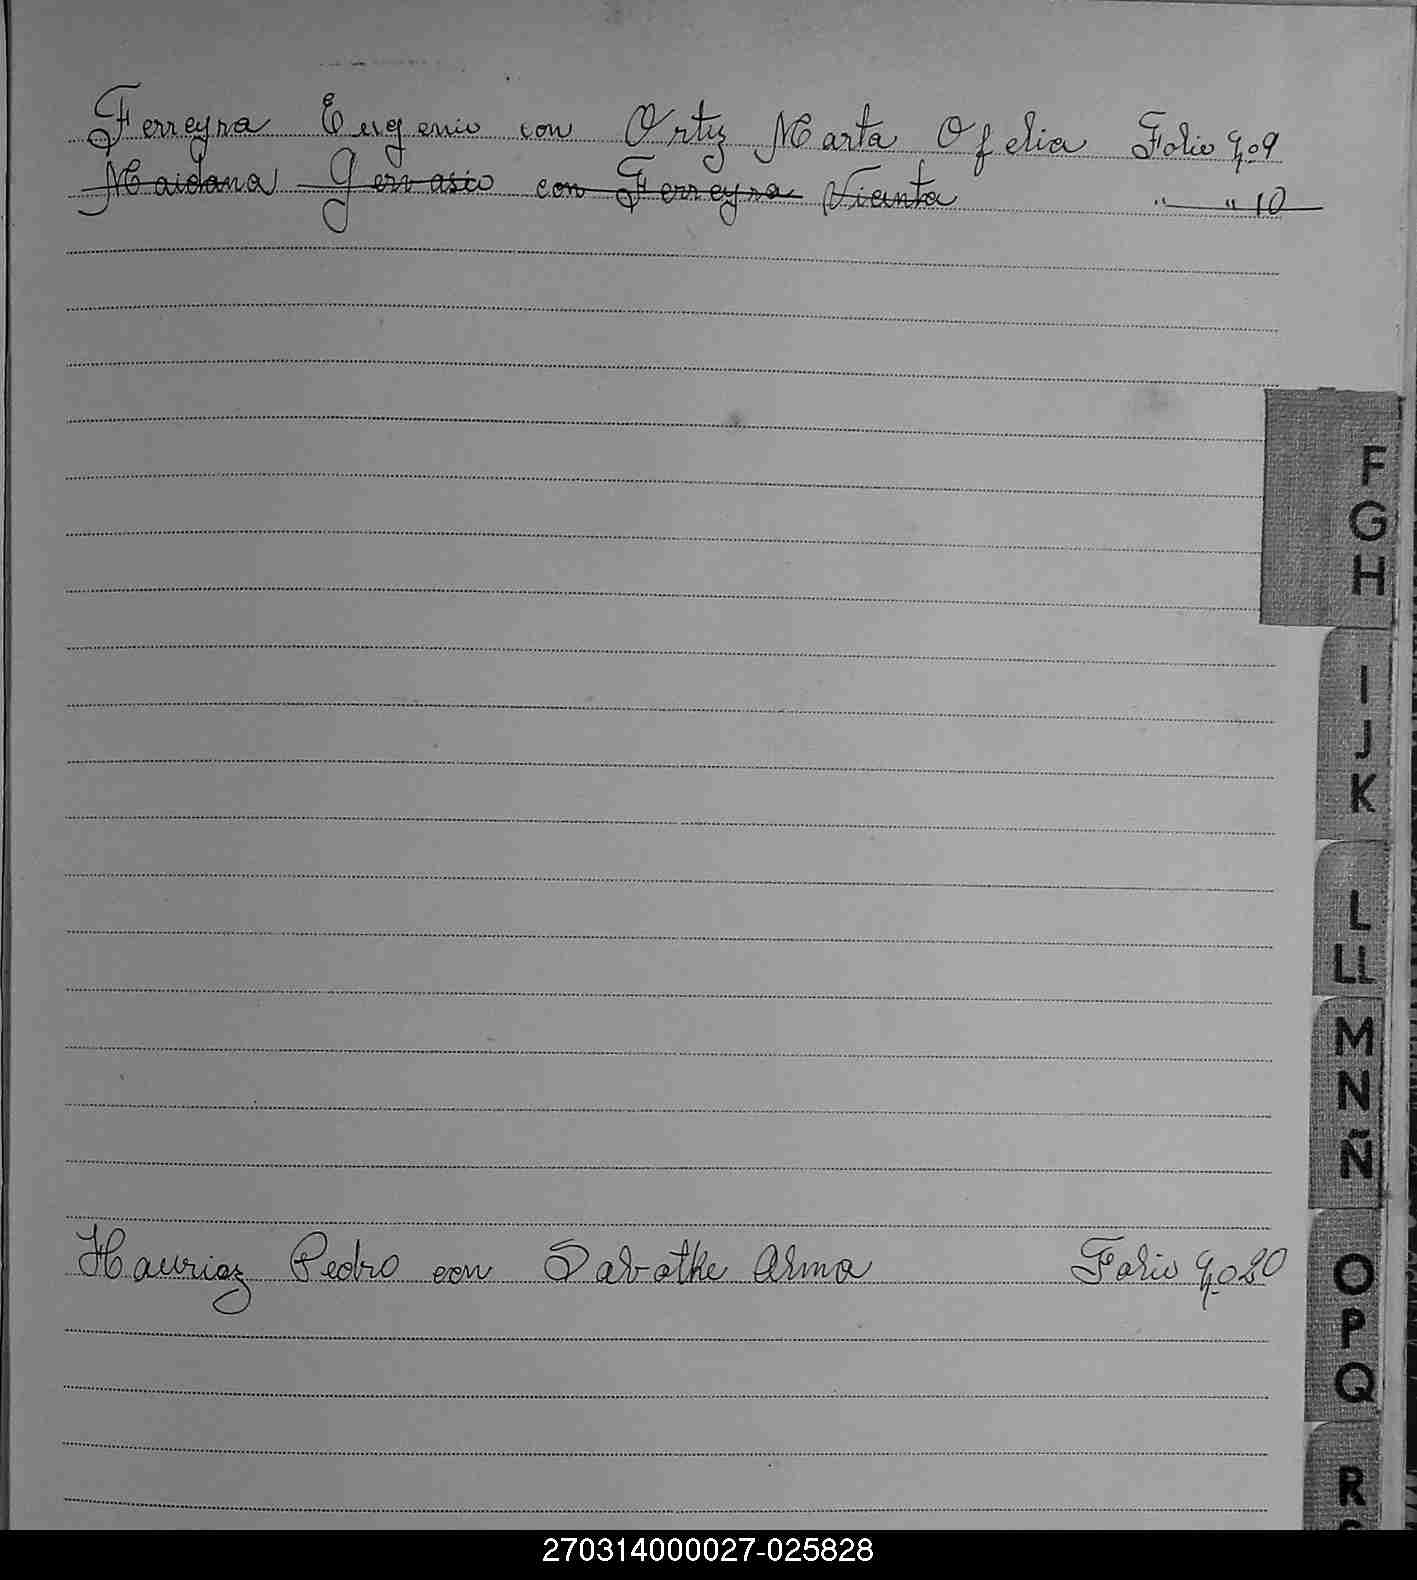 Ferreyra Eugenio con Ortiz Marta Ofelia Folio Nº 9
Maidana Gervasio con Ferreyra Vicenta " " 10
F
G
H
I
J
K
L
LL
M
N
Ñ
Hauriaz Pedro con Salvothe Alma Folio Nº 20
O
P
Q
R
270314000027-025828